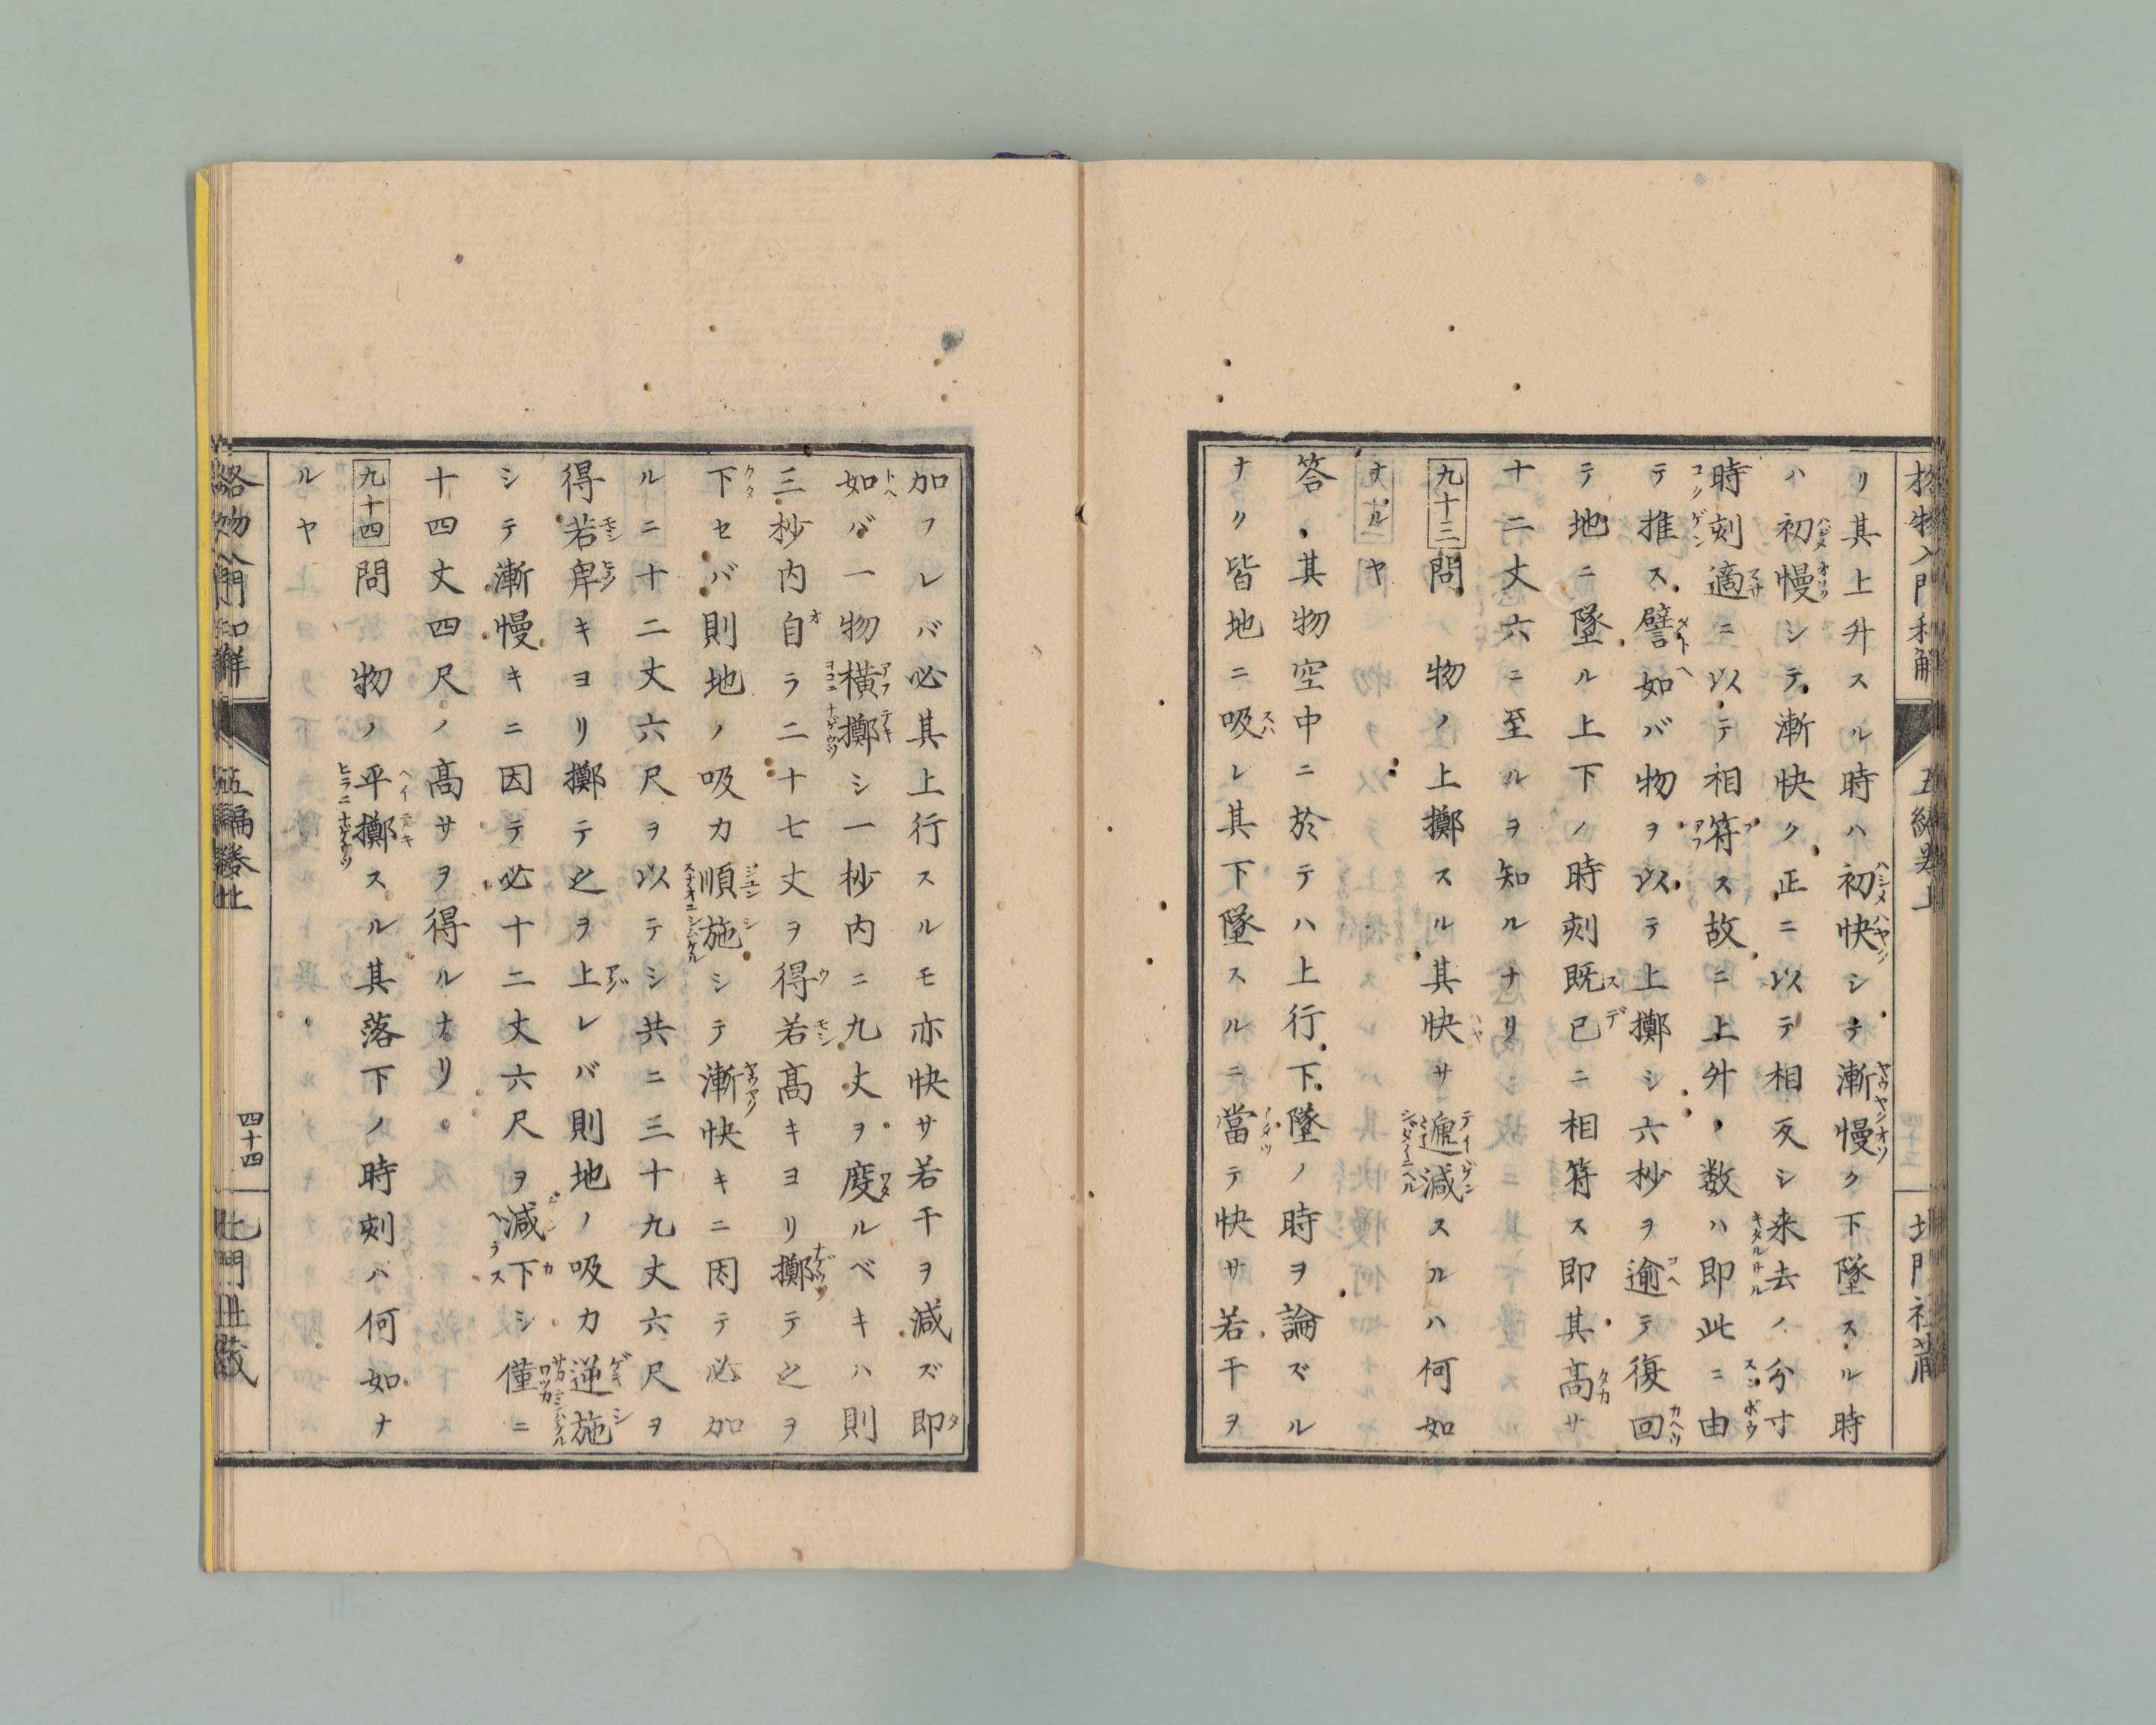 格物入門和解 五編巻上 北門社蔵
リ其上升スル時ハ初快シテ漸慢ク下墜スル時
ハ初慢シテ漸快ク正ニ以テ相反シ来去ノ分寸
時刻適ニ以テ相符ス故ニ上升ノ数ハ即此ニ由
テ推ス譬如バ物ヲ以テ上擲シ六杪ヲ逾テ復回
テ地ニ墜ル上下ノ時刻既已ニ相符ス即其高サ
十二丈六ニ至ルヲ知ルナリ
九十三問 物ノ上擲スル其快サ遞減スルハ何如
ナルヤ
答、其物空中ニ於テハ上行下墜ノ時ヲ論ズル
ナク皆地ニ吸レ其下墜スルニ當テ快サ若干ヲ
加フレバ必其上行スルモ亦快サ若干ヲ減ズ即
如バ一物横擲シ一杪内ニ九丈ヲ度ルベキハ則
三杪内自ラ二十七丈ヲ得若高キヨリ擲テ之ヲ
下セバ則地ノ吸力順施シテ漸快キニ因テ必加
ルニ十二丈六尺ヲ以テシ共ニ三十九丈六尺ヲ
得若卑キヨリ擲テ之ヲ上レバ則地ノ吸力逆施
シテ漸慢キニ因テ必十二丈六尺ヲ減下シ僅ニ
十四丈四尺ノ高サヲ得ルナリ
九十四問 物ノ平擲スル其落下ノ時刻ハ何如ナ
ルヤ
格物入門和解 五編巻上 四十四 北門社蔵